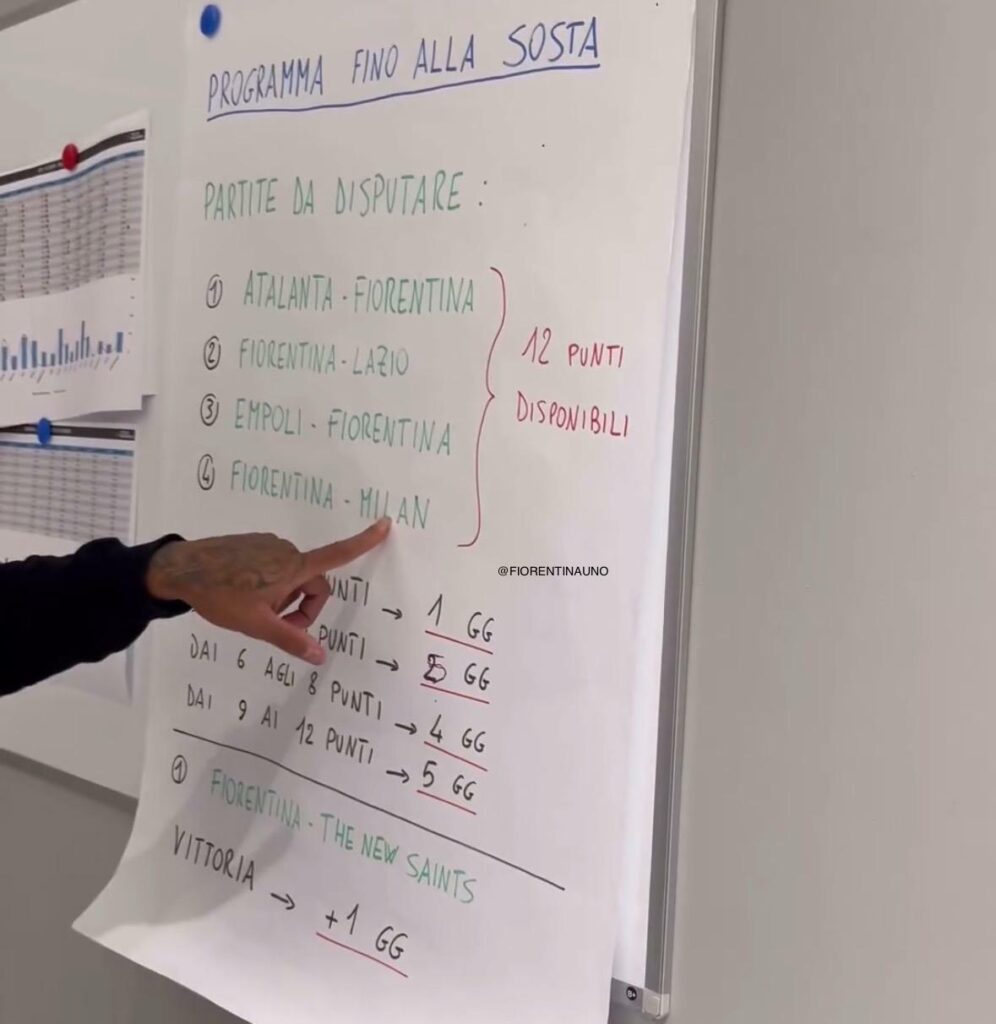 PROGRAMMA FINO ALLA SOSTA
PARTITE DA DISPUTARE :
① ATALANTA - FIORENTINA
② FIORENTINA - LAZIO
③ EMPOLI - FIORENTINA
④ FIORENTINA - MILAN
12 PUNTI
DISPONIBILI
@FIORENTINAUNO
PUNTI → 1 GG
PUNTI → GG
DAI 6 AGLI 8 PUNTI → 4 GG
DAI 9 AI 12 PUNTI → 5 GG
① FIORENTINA - THE NEW SAINTS
VITTORIA → +1 GG
B+